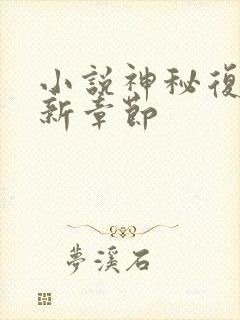 小說神秘復
新章節
夢溪石